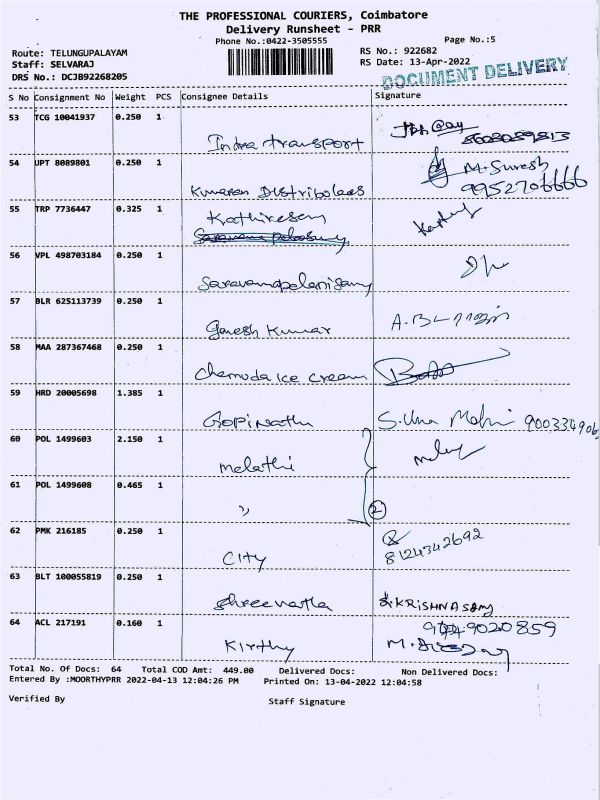 THE PROFESSIONAL COURIERS, Coimbatore
Delivery Runsheet - PRR
Phone No.:0422-3505555
Page No.:5
Route: TELUNGUPALAYAM
RS No.: 922682
Staff: SELVARAJ
RS Date: 13-Apr-2022
DRS No.: DCJB92268205
DOCUMENT DELIVERY
S No Consignment No Weight PCS Consignee Details Signature
53 TCG 10041937 0.250 1
Indra transport
54 UPT 8089801 0.250 1
M. Suresh
Kumaran Distributers 9952706666
55 TRP 7736447 0.325 1
Kathiresan
56 VPL 498703184 0.250 1
Saravanapalanisamy
57 BLR 625113739 0.250 1
Ganesh Kumar
58 MAA 287367468 0.250 1
Chamuda ice cream
59 HRD 20005698 1.385 1
Gopinath S. Uma Mohi 900334906
60 POL 1499603 2.150 1
Malathi
61 POL 1499608 0.465 1
" 2
62 PMK 216185 0.250 1
City 8124342692
63 BLT 100055819 0.250 1
Shreevatla KRISHNASAMY
64 ACL 217191 0.160 1
9020859
Kirthy
Total No. Of Docs: 64 Total COD Amt: 449.00 Delivered Docs: Non Delivered Docs:
Entered By :MOORTHYPRR 2022-04-13 12:04:26 PM Printed On: 13-04-2022 12:04:58
Verified By Staff Signature